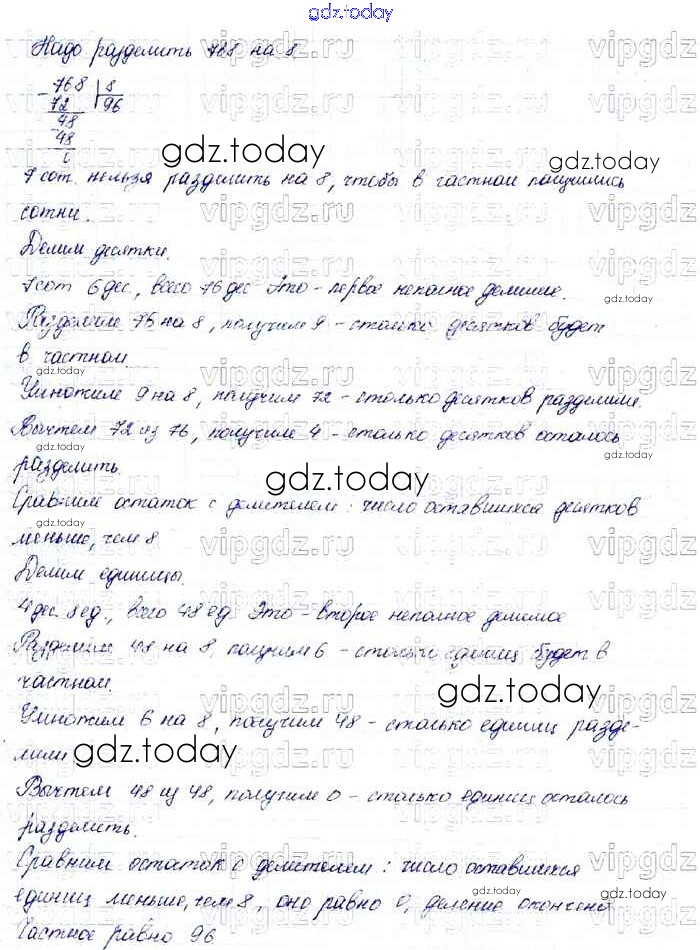 gdz.today
Надо разделить 768 на 8
768 | 8
72 96
48
48
0
7 сот. нельзя разделить на 8, чтобы в частном получились
сотни.
Делим десятки.
7 сот 6 дес., всего 76 дес Это - первое неполное делимое.
Разделим 76 на 8, получим 9 - столько десятков будет
в частном
Умножим 9 на 8, получим 72 - столько десятков разделили.
Вычтем 72 из 76, получим 4 - столько десятков осталось
разделить.
Сравним остаток с делителем: число оставшихся десятков
меньше, чем 8
Делим единицы.
4 дес. 8 ед., всего 48 ед Это - второе неполное делимое
Разделим 48 на 8, получим 6 - столько единиц будет в
частном.
Умножим 6 на 8, получим 48 - столько единиц разде-
лили
Вычтем 48 из 48, получим 0 - столько единиц осталось
разделить.
Сравним остаток с делителем: число оставшихся
единиц меньше, чем 8, оно равно 0, деление окончено
Частное равно 96